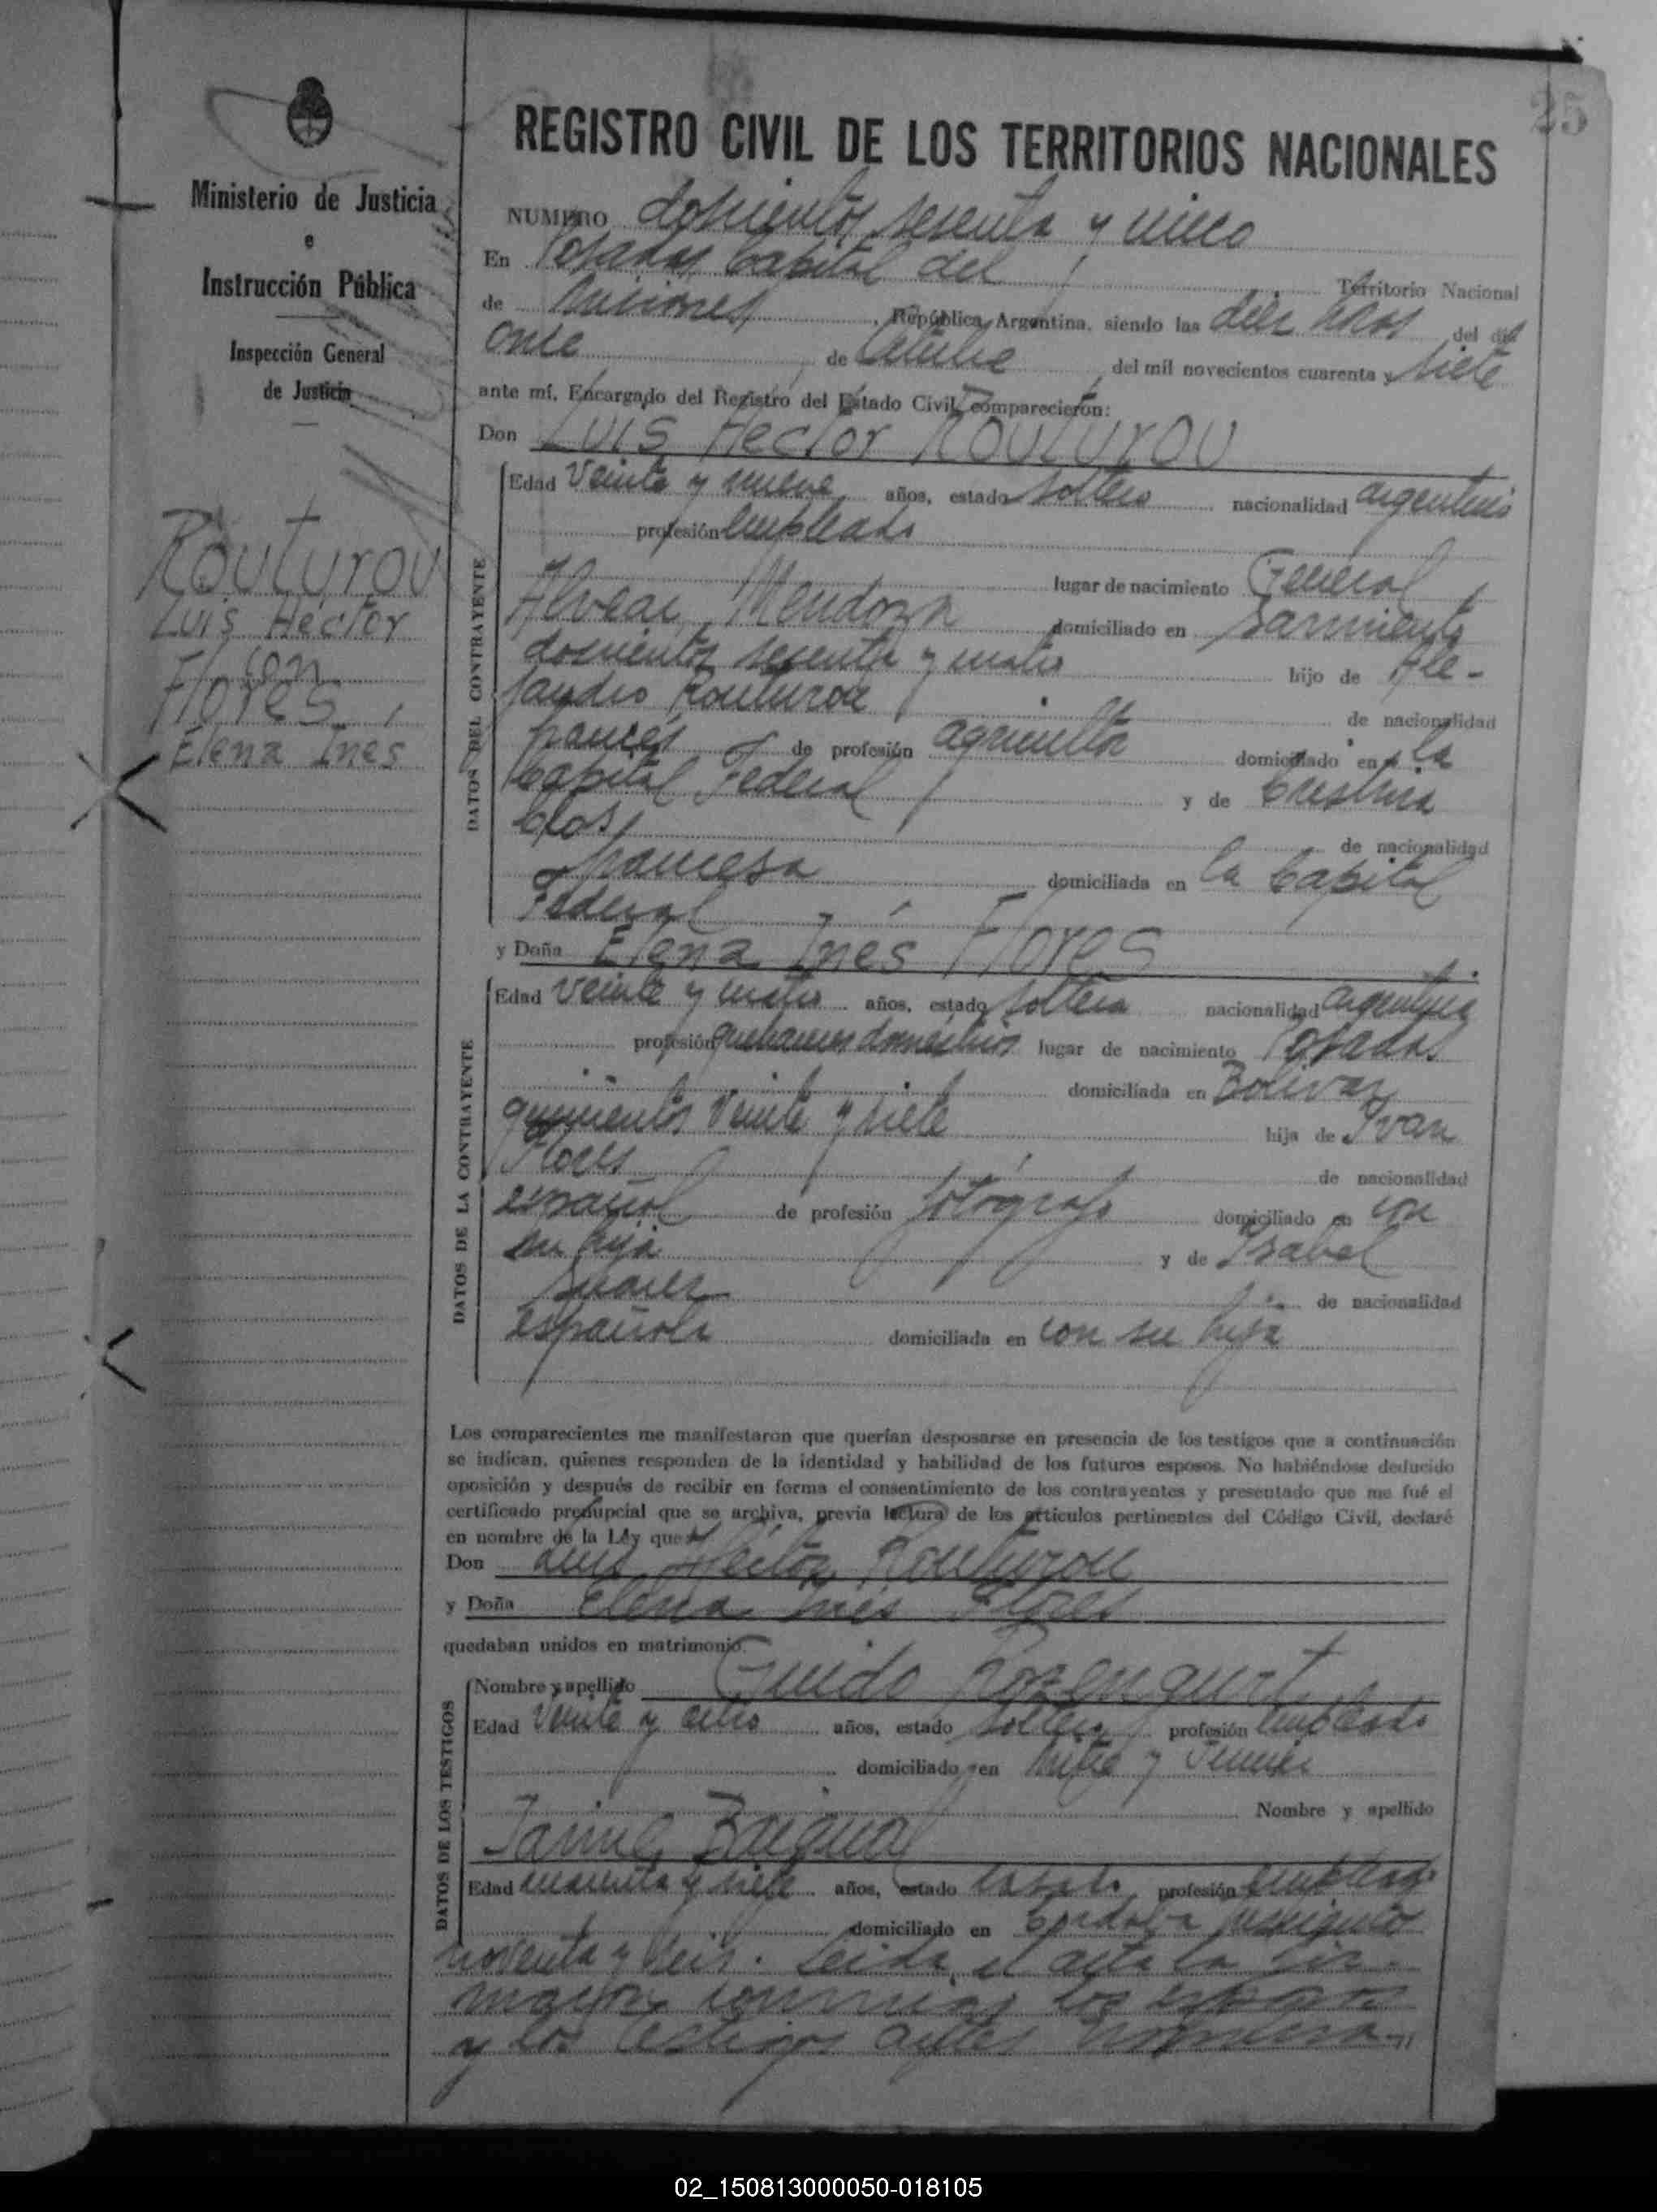 25
Ministerio de Justicia
e
Instrucción Pública
Inspección General
de Justicia
Routurou
Luis Héctor
con
Flores,
Elena Inés
REGISTRO CIVIL DE LOS TERRITORIOS NACIONALES
NUMERO doscientos sesenta y cinco
En Posadas Capital del Territorio Nacional
de Misiones, República Argentina, siendo las diez horas del día
once de Octubre del mil novecientos cuarenta y siete
ante mí, Encargado del Registro del Estado Civil, comparecieron:
Don Luis Héctor Routurou
DATOS DEL CONTRAYENTE
Edad Veinte y nueve años, estado soltero nacionalidad argentino
profesión empleado
lugar de nacimiento General
Alvear, Mendoza domiciliado en Sarmiento
doscientos sesenta y cuatro hijo de Ale-
jandro Routurou de nacionalidad
francés de profesión agricultor domiciliado en la
Capital Federal y de Cristina
Clos, de nacionalidad
francesa domiciliada en la Capital
Federal
y Doña Elena Inés Flores
DATOS DE LA CONTRAYENTE
Edad Veinte y cuatro años, estado soltera nacionalidad argentina
profesión quehaceres domésticos lugar de nacimiento Posadas
domiciliada en Bolivar
quinientos veinte y siete hija de Ivan
Flores de nacionalidad
español de profesión fotógrafo domiciliado en con
su hija y de Isabel
Suarez de nacionalidad
española domiciliada en con su hija
Los comparecientes me manifestaron que querían desposarse en presencia de los testigos que a continuación
se indican, quienes responden de la identidad y habilidad de los futuros esposos. No habiéndose deducido
oposición y después de recibir en forma el consentimiento de los contrayentes y presentado que me fué el
certificado prenupcial que se archiva, previa lectura de los artículos pertinentes del Código Civil, declaré
en nombre de la Ley que
Don Luis Héctor Routurou
y Doña Elena Inés Flores
quedaban unidos en matrimonio.
DATOS DE LOS TESTIGOS
Nombre y apellido Guido Rozengurt
Edad Veinte y ocho años, estado soltero profesión empleado
domiciliado en Mitre y
Nombre y apellido
Jaime
Edad cuarenta y siete años, estado casado profesión empleado
domiciliado en Cordoba
noventa y seis. Leida el acta la fir-
maron conmigo los esposos
y los testigos antes
02_150813000050-018105